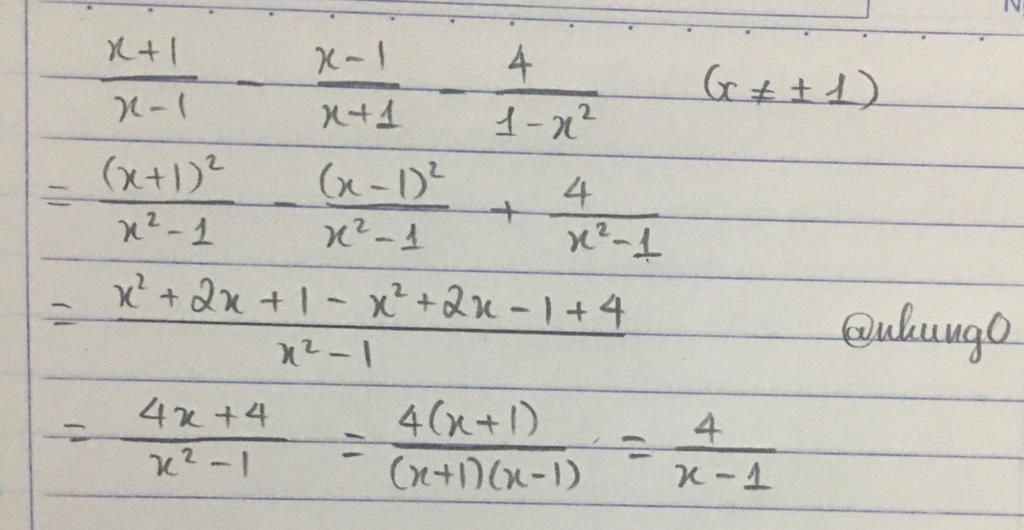 (x+1)/(x-1) - (x-1)/(x+1) - 4/(1-x²) (x ≠ ± 1)
= (x+1)²/(x²-1) - (x-1)²/(x²-1) + 4/(x²-1)
= (x²+2x+1-x²+2x-1+4)/(x²-1)
@nhung0
= (4x+4)/(x²-1) = 4(x+1)/((x+1)(x-1)) = 4/(x-1)